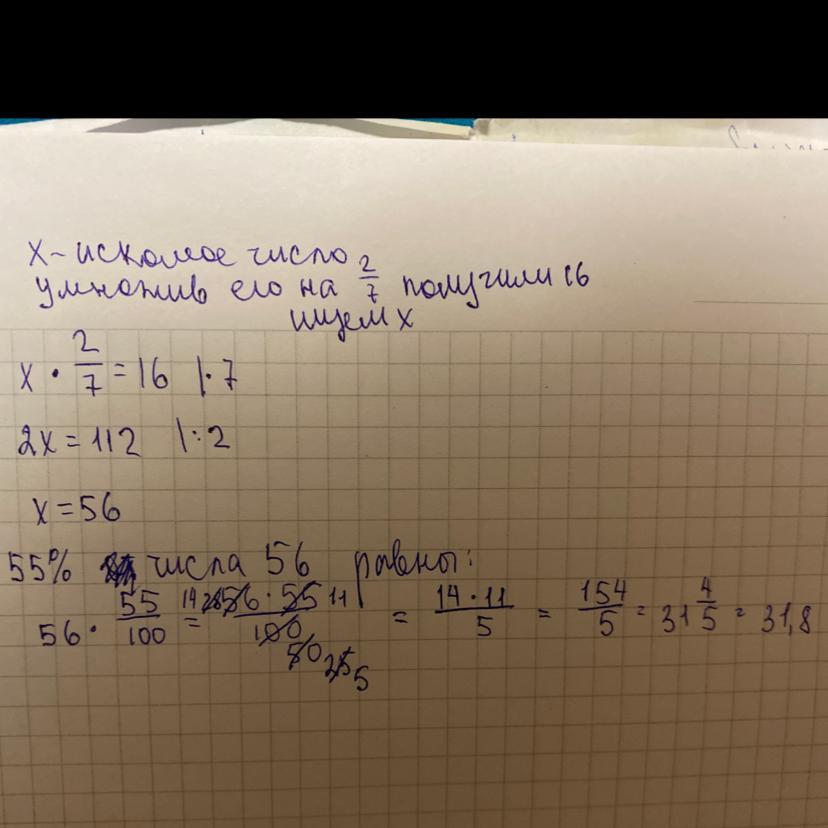 x - искомое число
умножив его на 2/7 получили 16
ищем x
x · 2/7 = 16 |·7
2x = 112 |:2
x = 56
55% числа 56 равны:
56 · 55/100 = 14 28 56 · 55 11 / 100 50 25 5 = 14 · 11/5 = 154/5 = 31 4/5 = 31,8